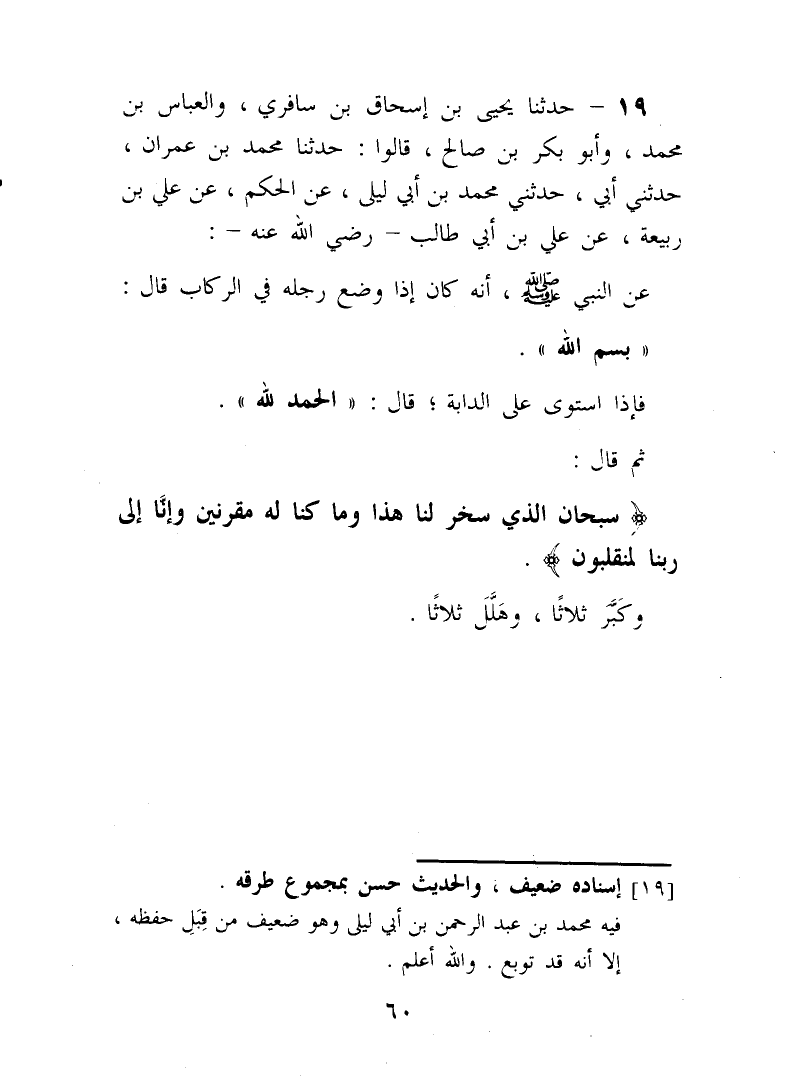 ١٩ – حدثنا يحيى بن إسحاق بن سافري ، والعباس بن
محمد ، وأبو بكر بن صالح ، قالوا : حدثنا محمد بن عمران ،
حدثني أبي ، حدثني محمد بن أبي ليلى ، عن الحكم ، عن علي بن
ربيعة ، عن علي بن أبي طالب – رضي الله عنه – :
عن النبي ﷺ ، أنه كان إذا وضع رجله في الركاب قال :
« بسم الله » .
فإذا استوى على الدابة ؛ قال : « الحمد لله » .
ثم قال :
﴿ سبحان الذي سخر لنا هذا وما كنا له مقرنين وإنَّا إلى
ربنا لمنقلبون ﴾ .
وكَبَّرَ ثلاثًا ، وهَلَّلَ ثلاثًا .
[١٩] إسناده ضعيف ، والحديث حسن بمجموع طرقه .
فيه محمد بن عبد الرحمن بن أبي ليلى وهو ضعيف من قِبَلِ حفظه ،
إلا أنه قد توبع . والله أعلم .
٦٠